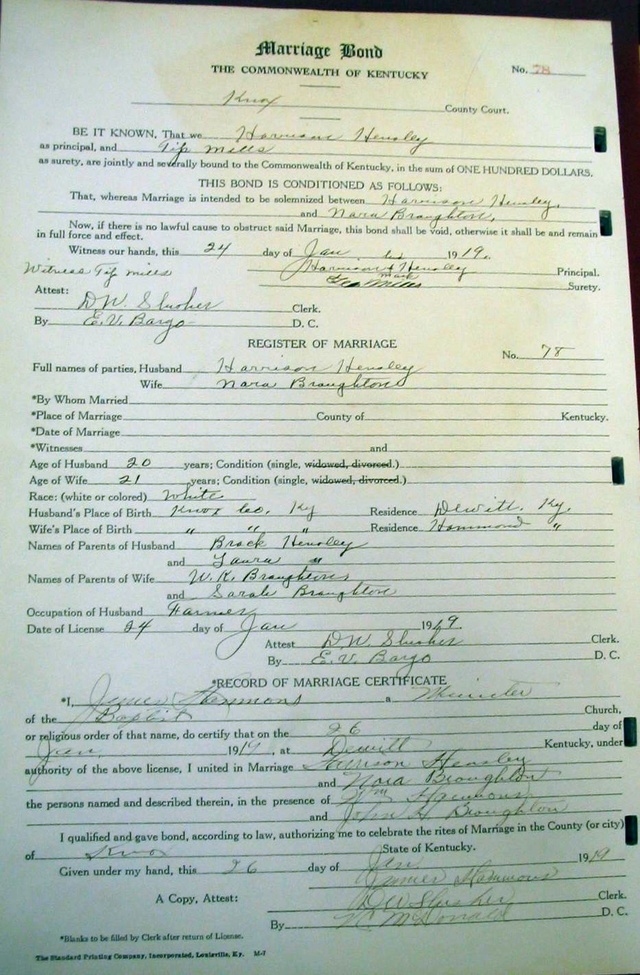 Marriage Bond
THE COMMONWEALTH OF KENTUCKY
No. 78
Knox County Court.
BE IT KNOWN, That we Harrison Hensley
as principal, and Tip Mills
as surety, are jointly and severally bound to the Commonwealth of Kentucky, in the sum of ONE HUNDRED DOLLARS.
THIS BOND IS CONDITIONED AS FOLLOWS:
That, whereas Marriage is intended to be solemnized between Harrison Hensley,
and Nora Broughton,
Now, if there is no lawful cause to obstruct said Marriage, this bond shall be void, otherwise it shall be and remain
in full force and effect.
Witness our hands, this 24 day of Jan 1919.
Witness Tip Mills Harrison his x mark Hensley Principal.
Mills Surety.
Attest:
D.W. Slusher Clerk.
By E.V. Bargo D. C.
REGISTER OF MARRIAGE
No. 78
Full names of parties, Husband Harrison Hensley
Wife Nora Broughton
*By Whom Married
*Place of Marriage County of Kentucky.
*Date of Marriage
*Witnesses and
Age of Husband 20 years; Condition (single, widowed, divorced.)
Age of Wife 21 years; Condition (single, widowed, divorced.)
Race: (white or colored) White
Husband's Place of Birth Knox Co, Ky Residence Dewitt, Ky.
Wife's Place of Birth " " " Residence Hammond "
Names of Parents of Husband Brock Hensley
and Laura "
Names of Parents of Wife W.R. Broughton
and Sarah Broughton
Occupation of Husband Farmer
Date of License 24 day of Jan 1919
Attest D.W. Slusher Clerk.
By E.V. Bargo D. C.
*RECORD OF MARRIAGE CERTIFICATE
*I, James Hammons a Minister
of the Baptist Church,
or religious order of that name, do certify that on the 26 day of
Jan 1919, at Dewitt Kentucky, under
authority of the above license, I united in Marriage Harrison Hensley
and Nora Broughton
the persons named and described therein, in the presence of Wm Hammons
and John H Broughton
I qualified and gave bond, according to law, authorizing me to celebrate the rites of Marriage in the County (or city)
of Knox State of Kentucky.
Given under my hand, this 26 day of Jan 1919
James Hammons
A Copy, Attest: D W Slusher Clerk.
By McDonald D. C.
*Blanks to be filled by Clerk after return of License.
The Standard Printing Company, Incorporated, Louisville, Ky. M-7